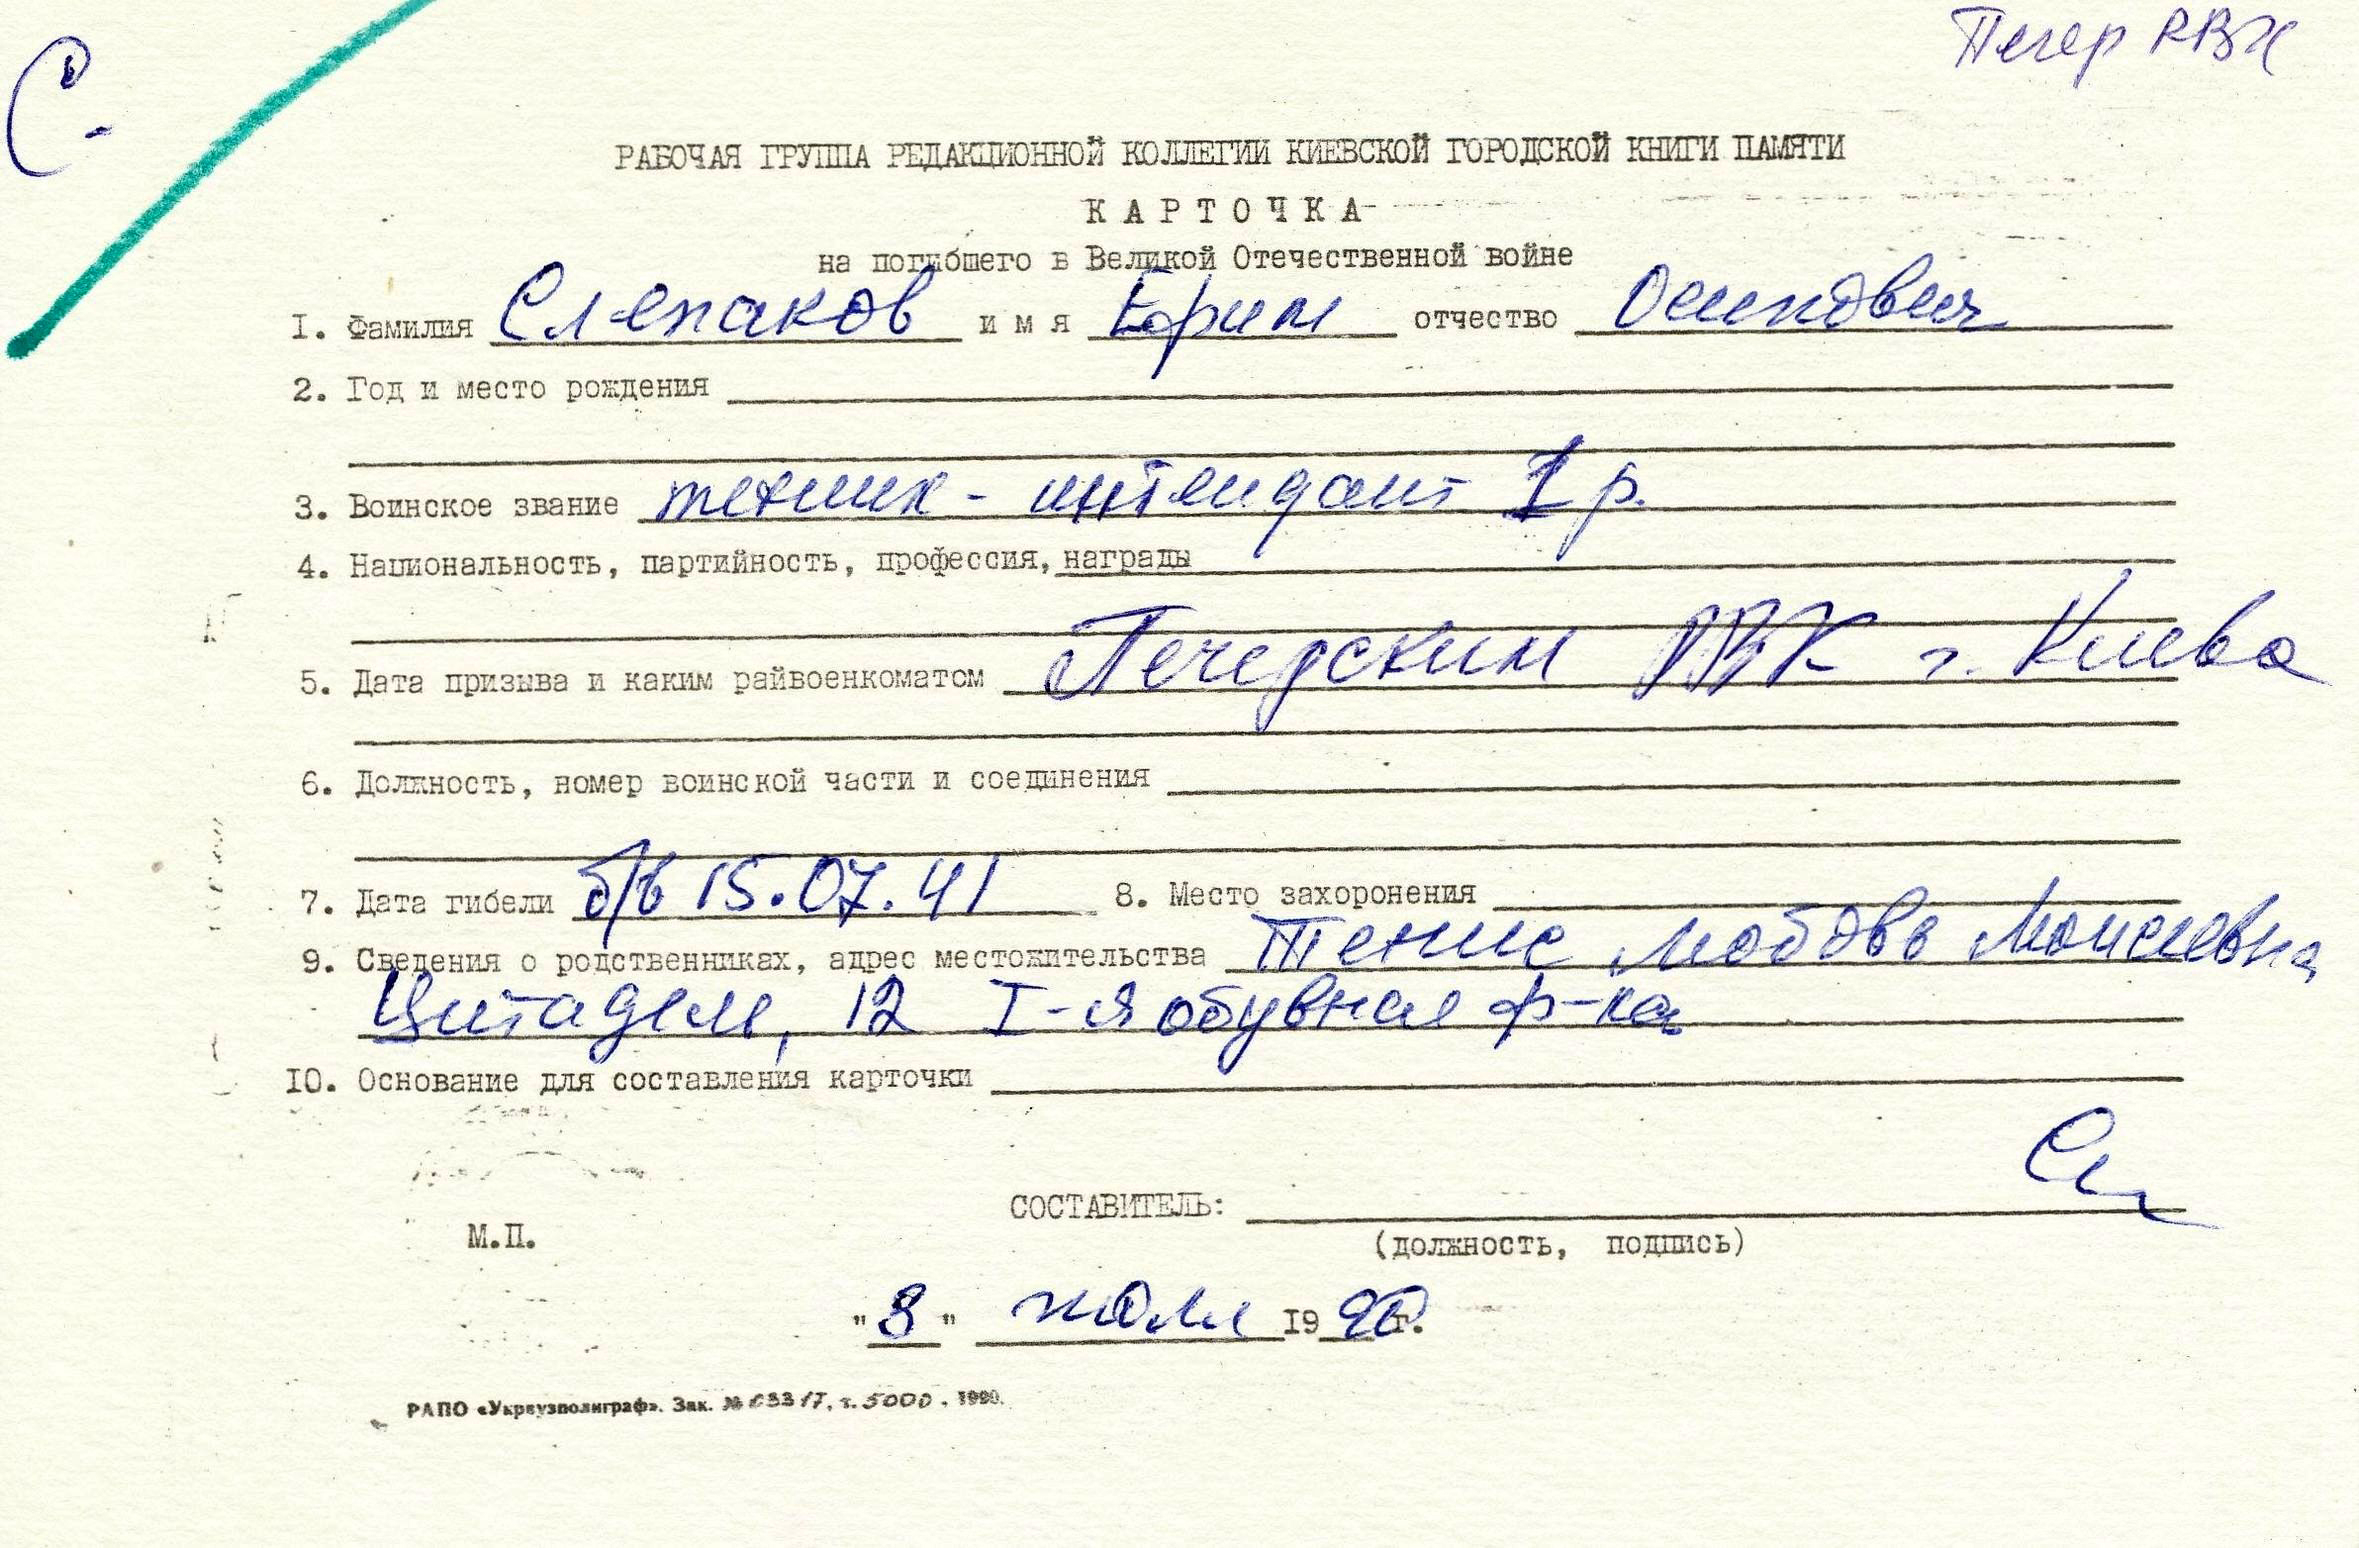 С.
Печер РВК
РАБОЧАЯ ГРУППА РЕДАКЦИОННОЙ КОЛЛЕГИИ КИЕВСКОЙ ГОРОДСКОЙ КНИГИ ПАМЯТИ
КАРТОЧКА
на погибшего в Великой Отечественной войне
I. Фамилия Слепаков имя Ефим отчество Осипович
2. Год и место рождения
3. Воинское звание техник-интендант 1 р.
4. Национальность, партийность, профессия, награды
5. Дата призыва и каким райвоенкоматом Печерским РВК г. Киева
6. Должность, номер воинской части и соединения
7. Дата гибели б/в 15.07.41 8. Место захоронения
9. Сведения о родственниках, адрес местожительства Тенис Любовь Моисеевна
Цитадели, 12 I-я обувная ф-ка
IO. Основание для составления карточки
СОСТАВИТЕЛЬ:
М.П. (должность, подпись)
"8" июля 1990 г.
РАПО «Укрвузполиграф». Зак. № т. 5000. 1990.